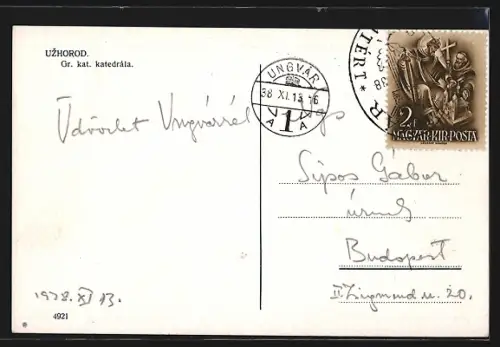 UŽHOROD.
Gr. kat. katedrála.
UNGVÁR
38 XI. 13 - 16
1
A A
TÉRT *
ÁR
38
2f
MAGYAR·KIR·POSTA
Üdvözlet Ungvárról
Sipos Gábor
úrnak
Budapest
II Zsigmond u. 20.
1938. XI 13.
4921